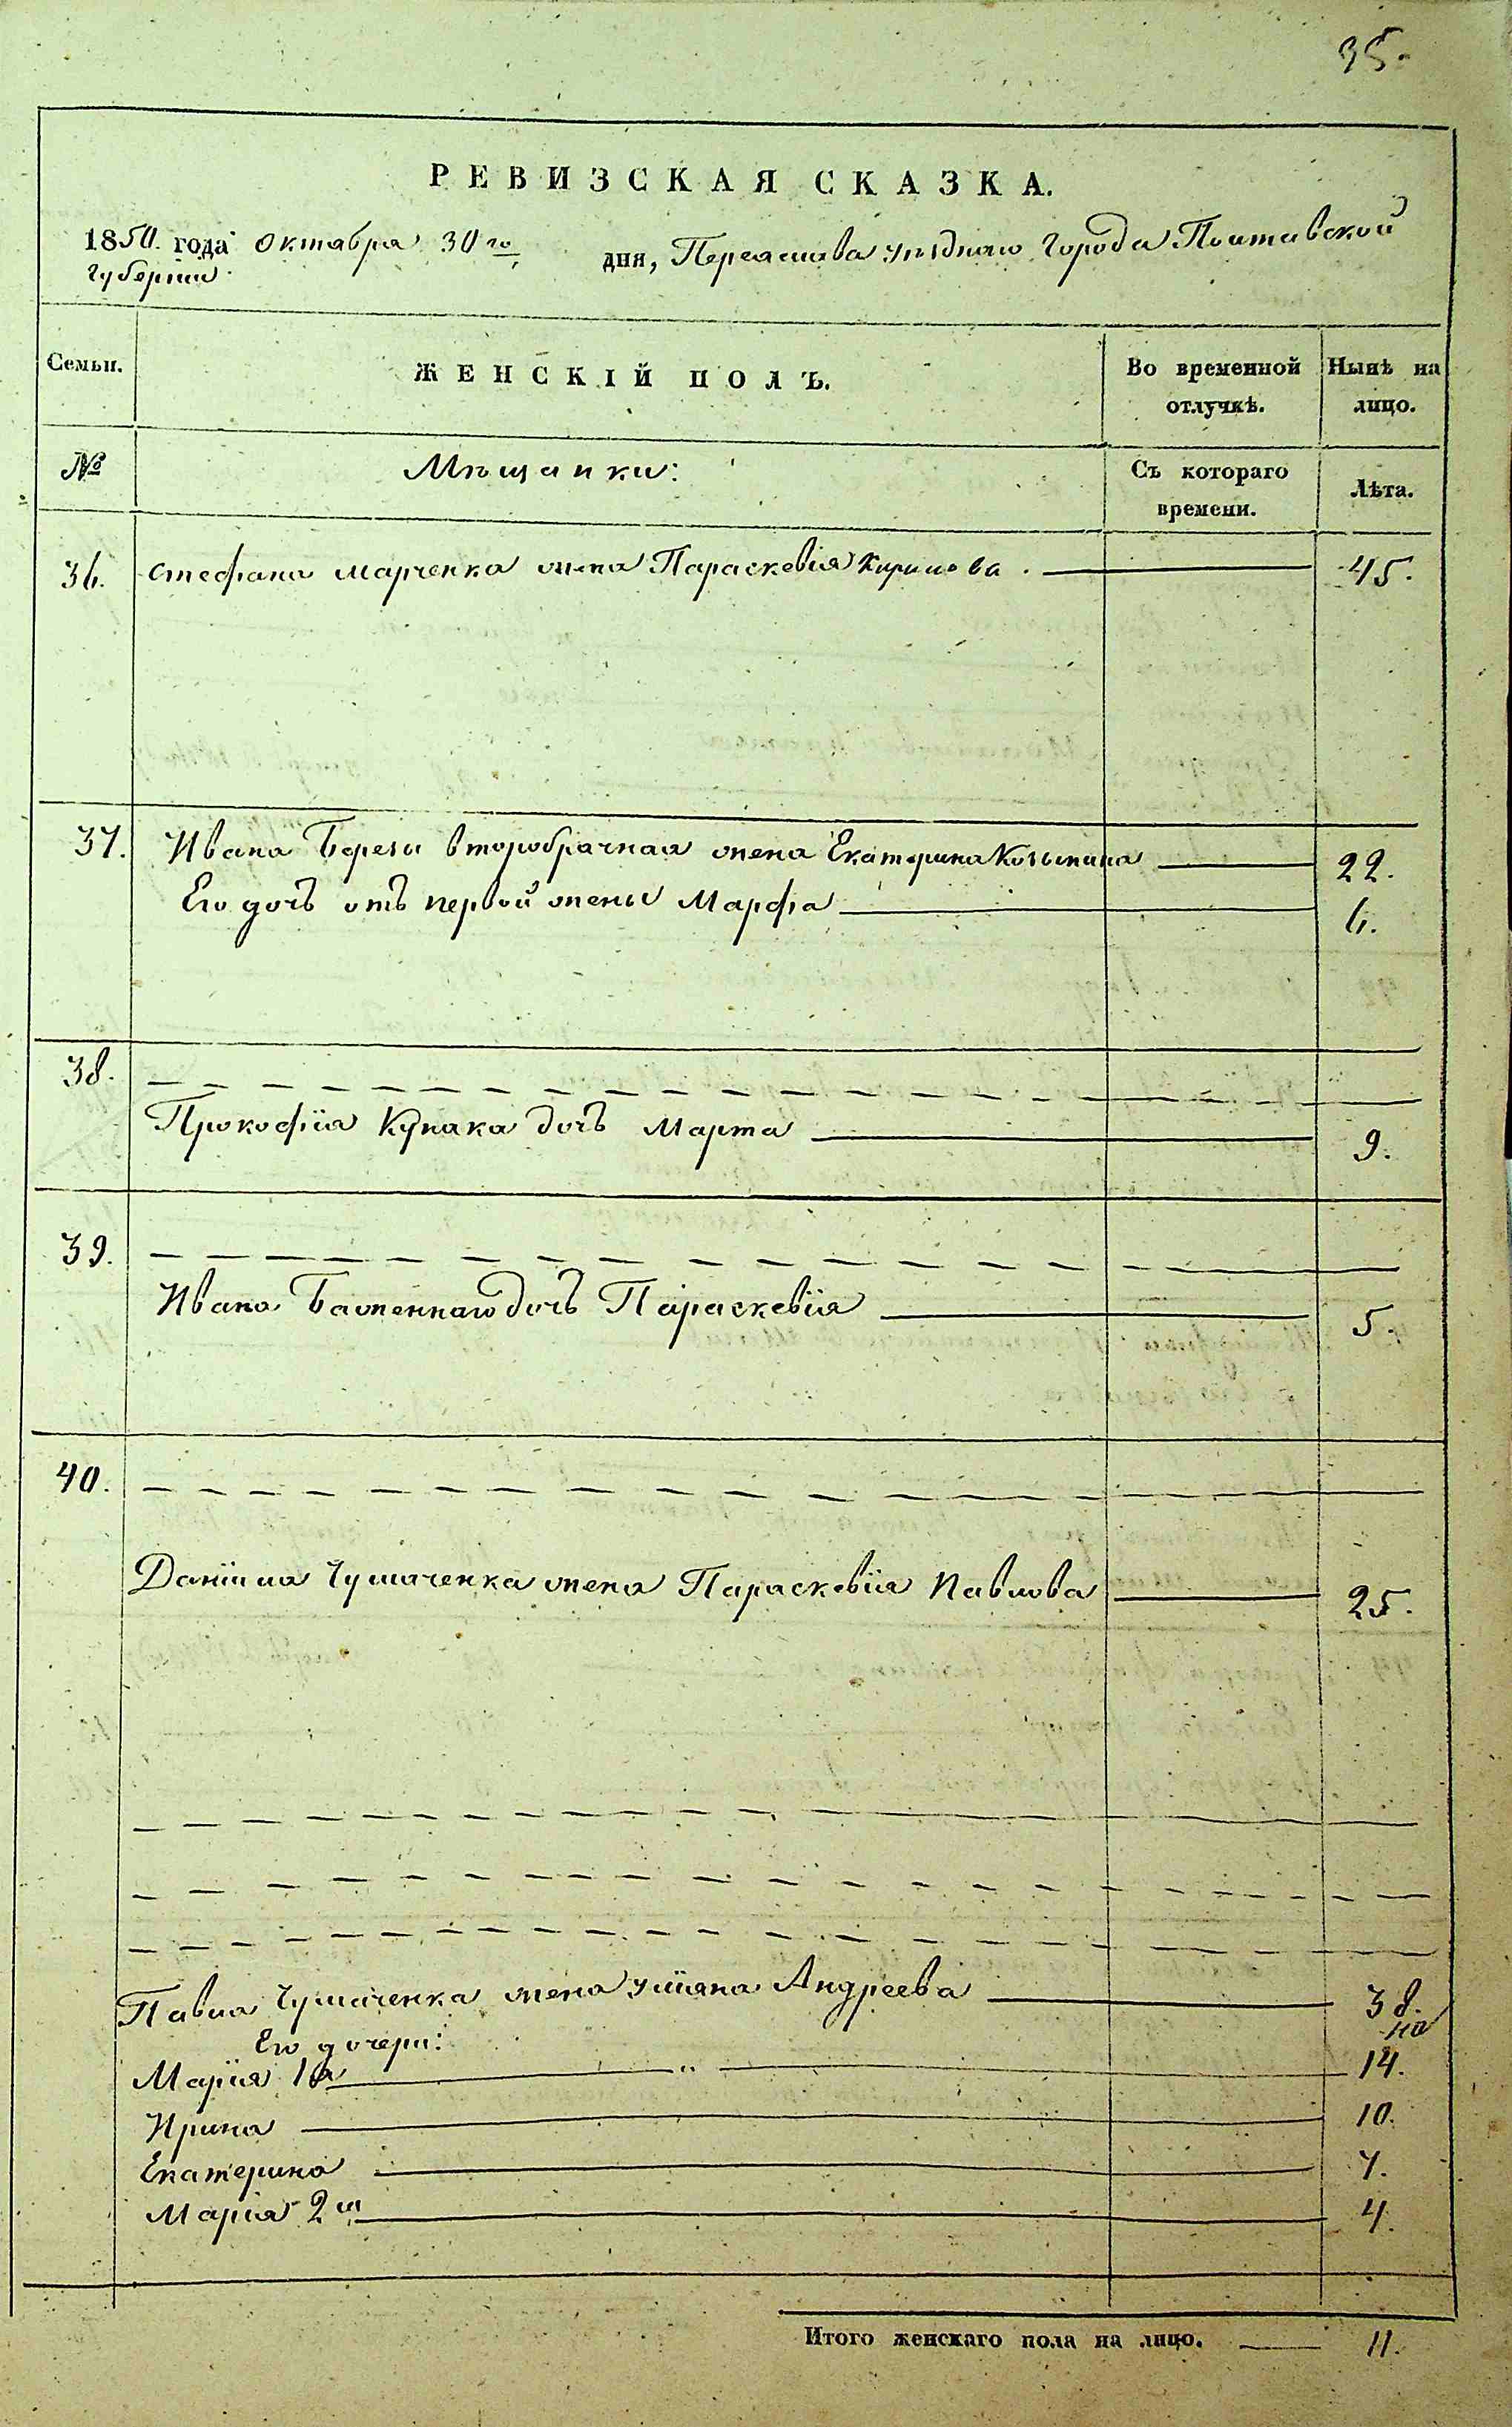 35.
РЕВИЗСКАЯ СКАЗКА.
1850. года Октября 30го дня, Переяслава уѣзднаго города Полтавской
губерніи.
Семьи.
ЖЕНСКІЙ ПОЛЪ.
Во временной отлучкѣ.
Нынѣ на лицо.
№
Мѣщанки:
Съ котораго времени.
Лѣта.
36. Стефана Марченка жена Параскевія Кирилова. 45.
37. Ивана Березы второбрачная жена Екатерина 22.
Его дочь отъ первой жены Марфа 6.
38.
Прокофія Кулака дочь Марта 9.
39.
Ивана Баженнаго дочь Параскевія 5.
40.
Даніила Чумаченка жена Параскевія Павлова 25.
Павла Чумаченка жена Уліяна Андреева 38.
Его дочери:
Марія 1я 14.
Ирина 10.
Екатерина 7.
Марія 2я 4.
Итого женскаго пола на лицо. 11.